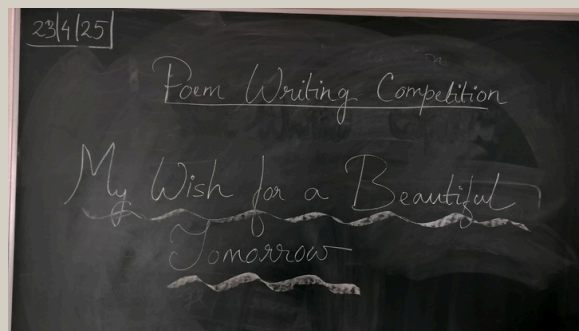 23/4/25
Poem Writing Competition
My Wish for a Beautiful
Tomorrow